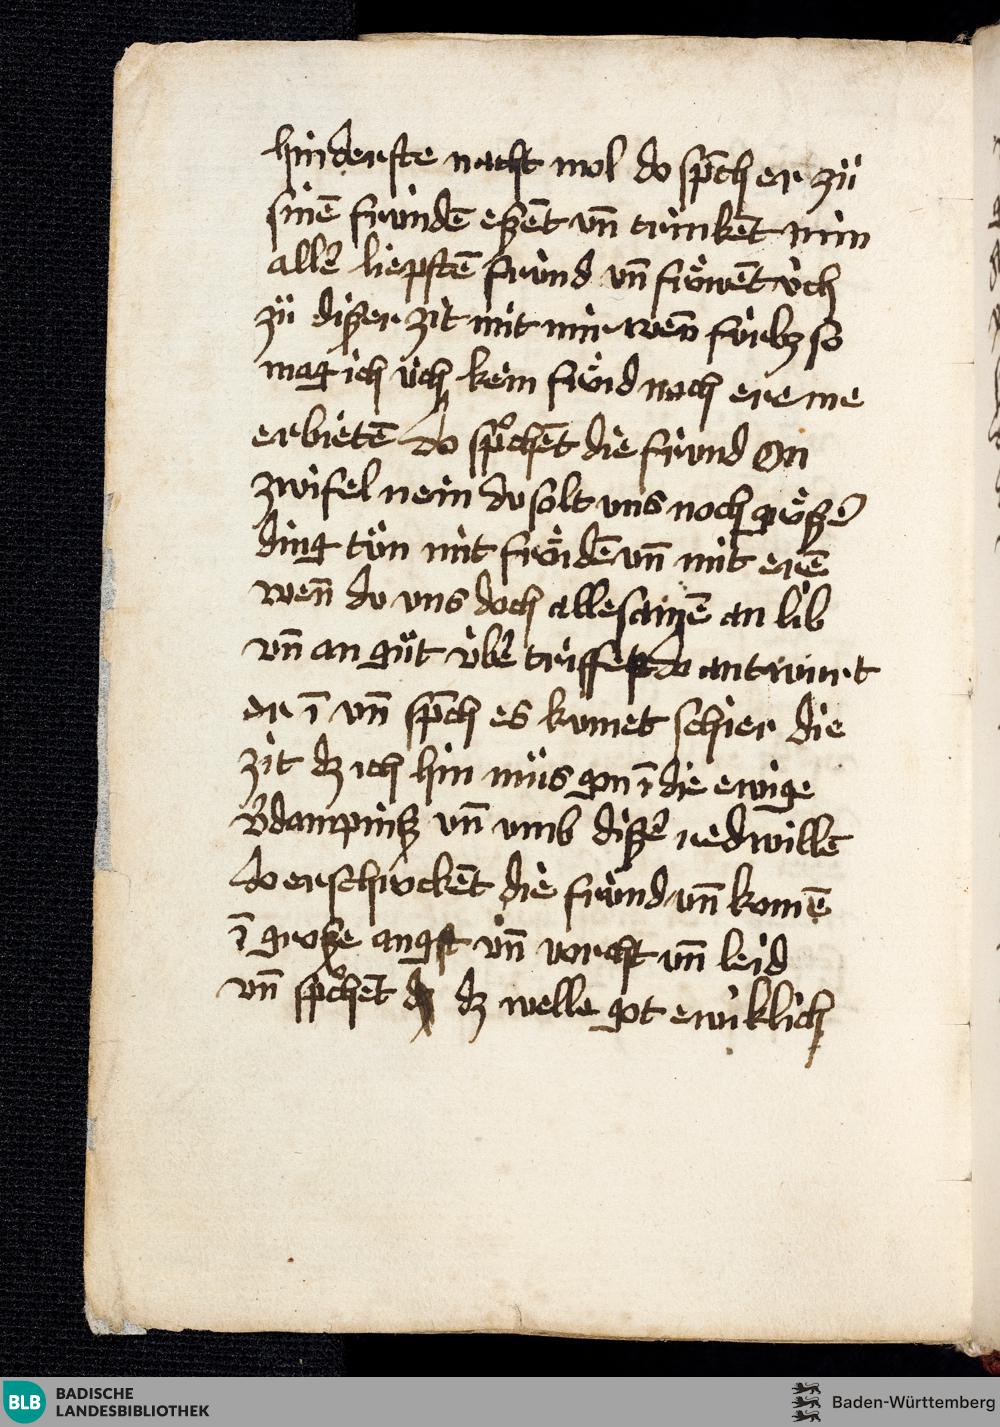 hinderste nacht mol do sp̄ch er zuͦ
sinē fründē eßēt vn̄ trinkēt min
allē liepstē fründ vn̄ fröwēt üch
zü dißer zit mit mir wen̄ fürbz so
mag ich üch kein fröid noch ere me
erbietē do spͦchēt die fründ On
zwifel nein du solt vns noch größer̄
ding tün mit fröidē vn̄ mit erē
wen̄ du vns doch alle samē an lib
vn̄ an güt übē triffest do antwurt
er ī vn̄ sp̄ch es kumet schier die
zit dz ich hin müs gon ī die ewige
v̄dampniß vn̄ vmb dißer̄ red willē
do erschruckēt die fründ vn̄ komē
ī große angst vn̄ vorcht vn̄ leid
vn̄ spͦchēt dz welle got ewiklich
BLB
BADISCHE
LANDESBIBLIOTHEK
Baden-Württemberg